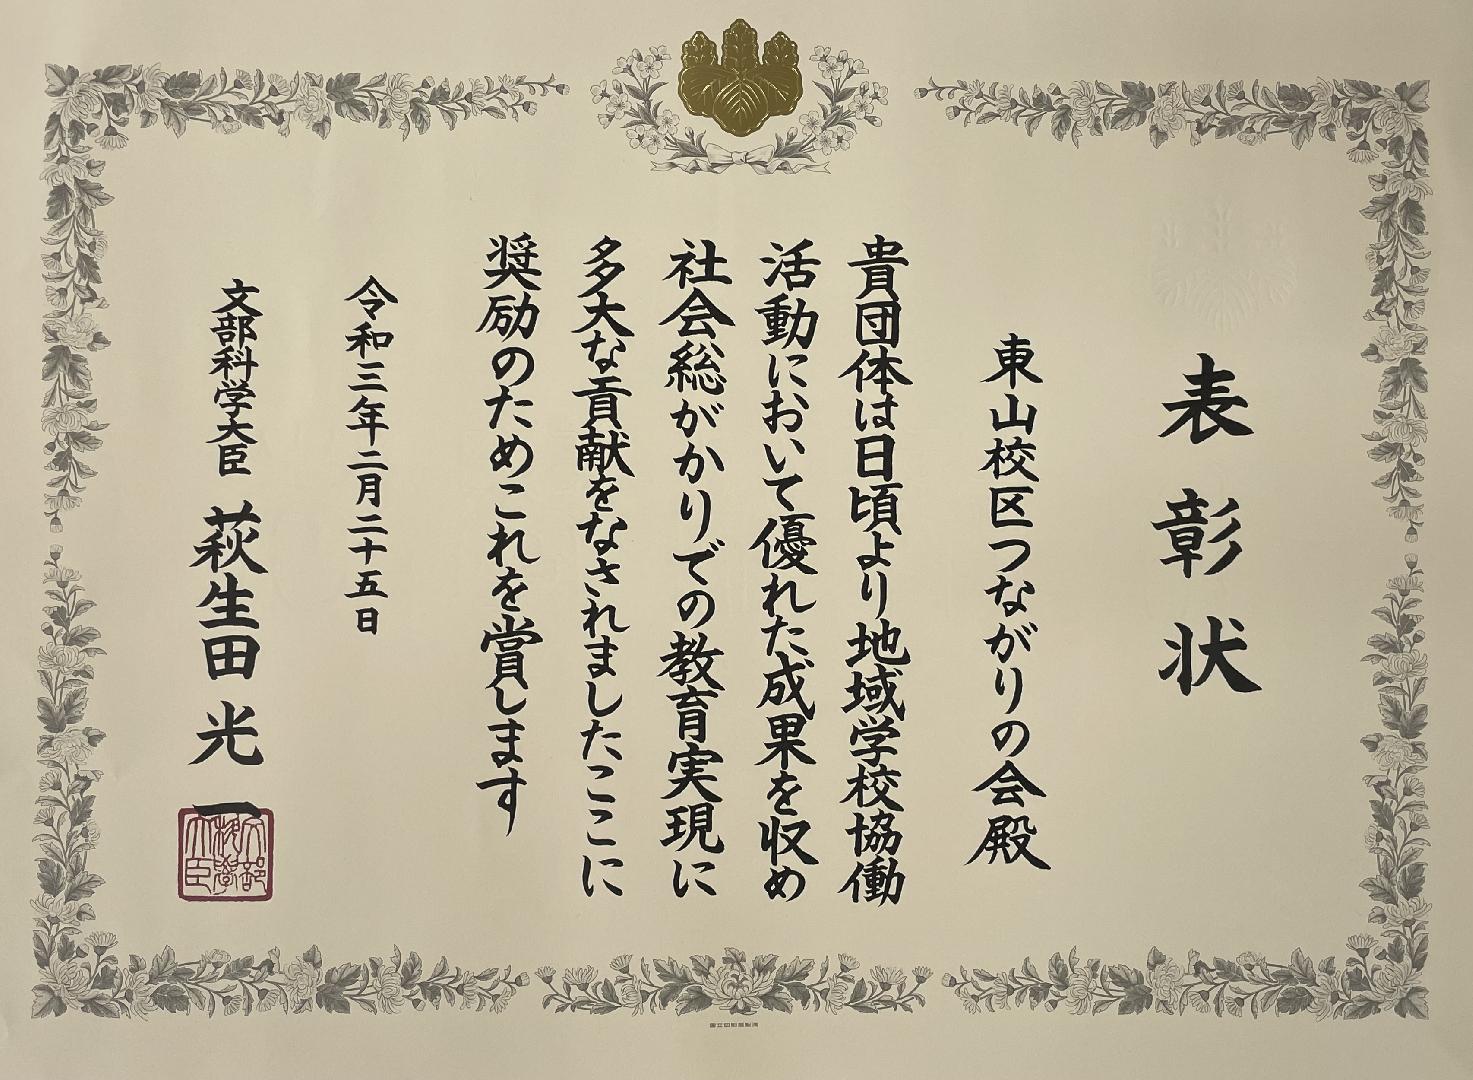 表彰状
東山校区つながりの会殿
貴団体は日頃より地域学校協働
活動において優れた成果を収め
社会総がかりでの教育実現に
多大な貢献をなされましたここに
奨励のためこれを賞します
令和三年二月二十五日
文部科学大臣 萩生田光一
文部科學大臣